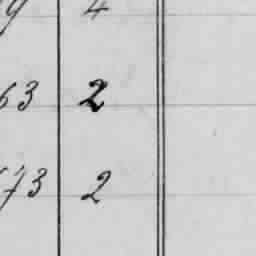 9 4
63 2
73 2